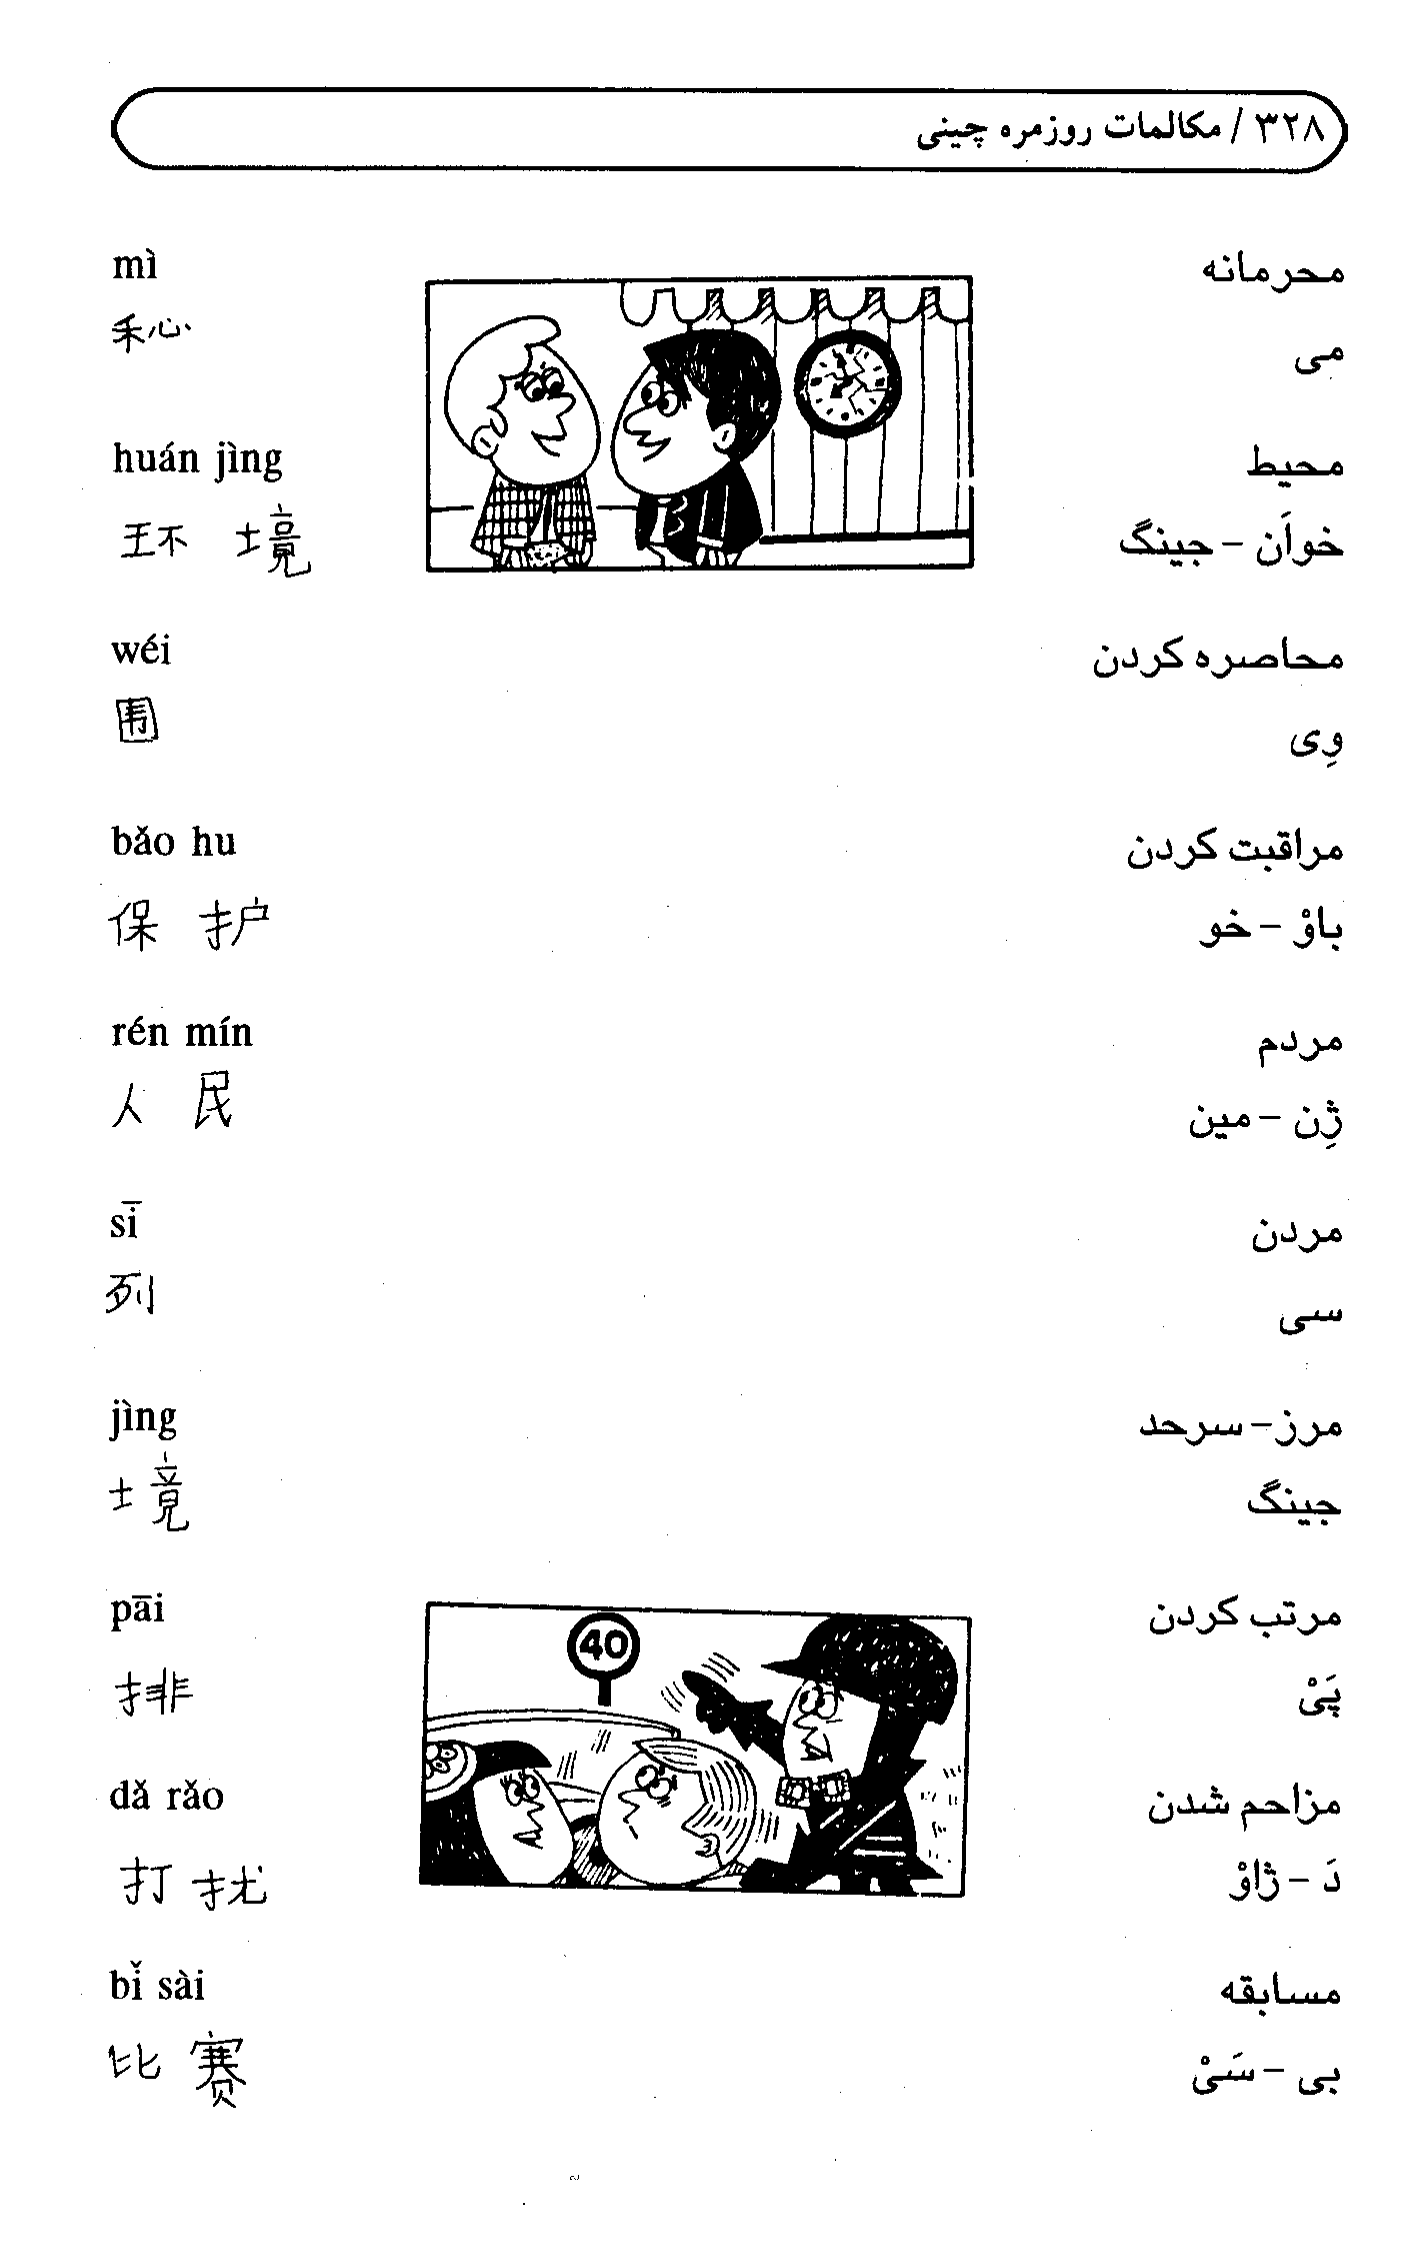 ۳۲۸ / مکالمات روزمره چینی
mì
محرمانه
می
huán jìng
محیط
环 境
خوَآن - جینگ
wéi
محاصره کردن
围
وِی
bǎo hu
مراقبت کردن
保 护
باوْ - خو
rén mín
مردم
人 民
ژِن - مین
sī
مردن
列
سی
jìng
مرز - سرحد
境
جینگ
pāi
مرتب کردن
排
پَیْ
40
dǎ rǎo
مزاحم شدن
打 扰
دَ - ژاوْ
bǐ sài
مسابقه
比 赛
بی - سَیْ